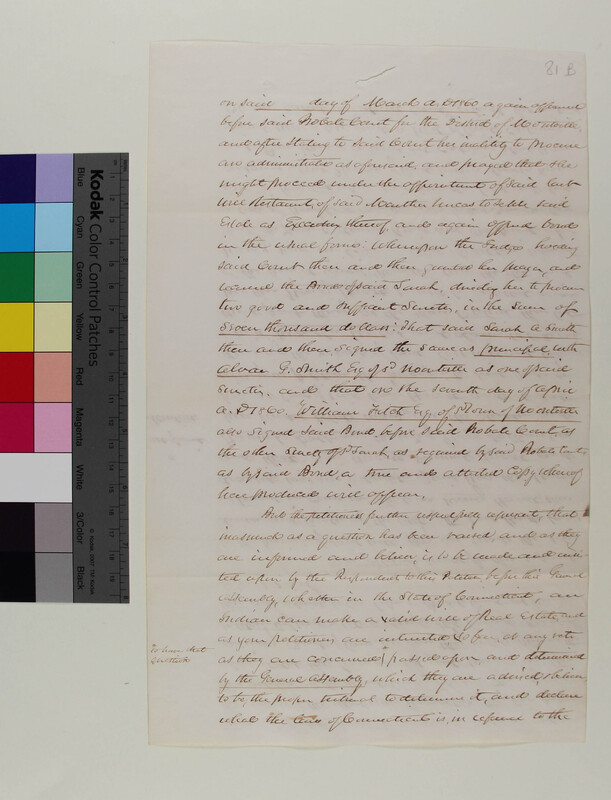 81 B
on said day of March A.D 1860 again appeared
before said Probate Court for the District of Montville
and after Stating to said Court her inability to procure
an administrator as aforesaid, and prayed that she
might proceed under the appointment of said last
Will & testament, of said Mouther Uncas to settle said
Estate as Executrix thereof, and again offered bonds
in the usual form: Whereupon the Judge holding
said Court then and then granted her prayer, and
the Bond of said Sarah, directing her to procure
two good and sufficient Sureties, in the sum of
Seven thousand dollars: That said Sarah A. Smith
then and then Signed the same as principal, with
Alvan G. Smith Esq of sd Montville as one of said
Sureties, and that on the Seventh day of April
A.D 1860. William Fitch Esq. of sd Town of Montville
also Signed said Bond, before said Probate Court, as
the other Surety of sd Sarah, as required by said Probate Court,
as by said Bond, a true and attested Copy whereof
here produced will appear.
And the petitioners further respectfully represent, that
inasmuch as a question has been raised, and as they
are informed and believe, is to be made and insis-
ted upon by the Respondent to this Petition before this General
Assembly, whether in the State of Connecticut, an
Indian can make a valid will of Real Estate, and
as your petitioners are interested so far, at any rate
To have that
question
as they are concerned, passed upon and determined
by the General Assembly, which they are advised & believe
to be the proper tribunal to determine it, and declare
what the law of Connecticut is, in reference to the
Kodak Color Control Patches
Blue
Cyan
Green
Yellow
Red
Magenta
White
3/Color
Black